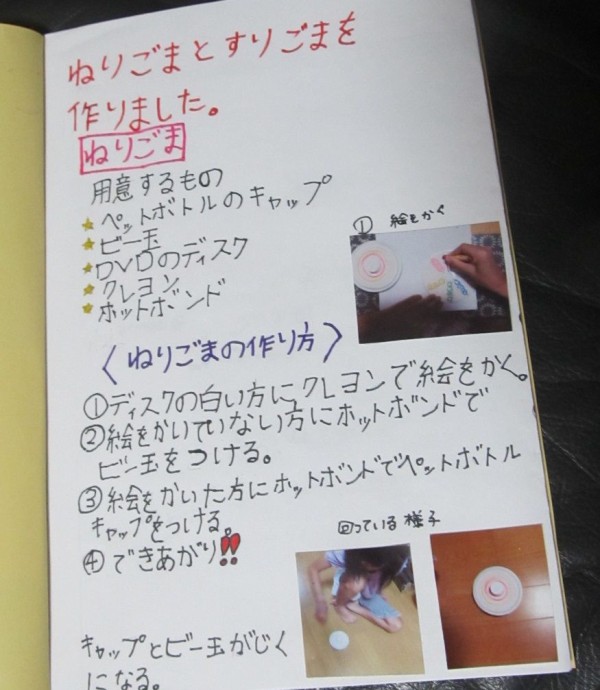 ねりごまとすりごまを
作りました。
ねりごま
用意するもの
★ペットボトルのキャップ
★ビー玉
★DVDのディスク
★クレヨン
★ホットボンド
① 絵をかく
〈ねりごまの作り方〉
①ディスクの白い方にクレヨンで絵をかく。
②絵をかいていない方にホットボンドで
ビー玉をつける。
③絵をかいた方にホットボンドでペットボトル
キャップをつける。
④できあがり!!
回っている様子
キャップとビー玉がじく
になる。